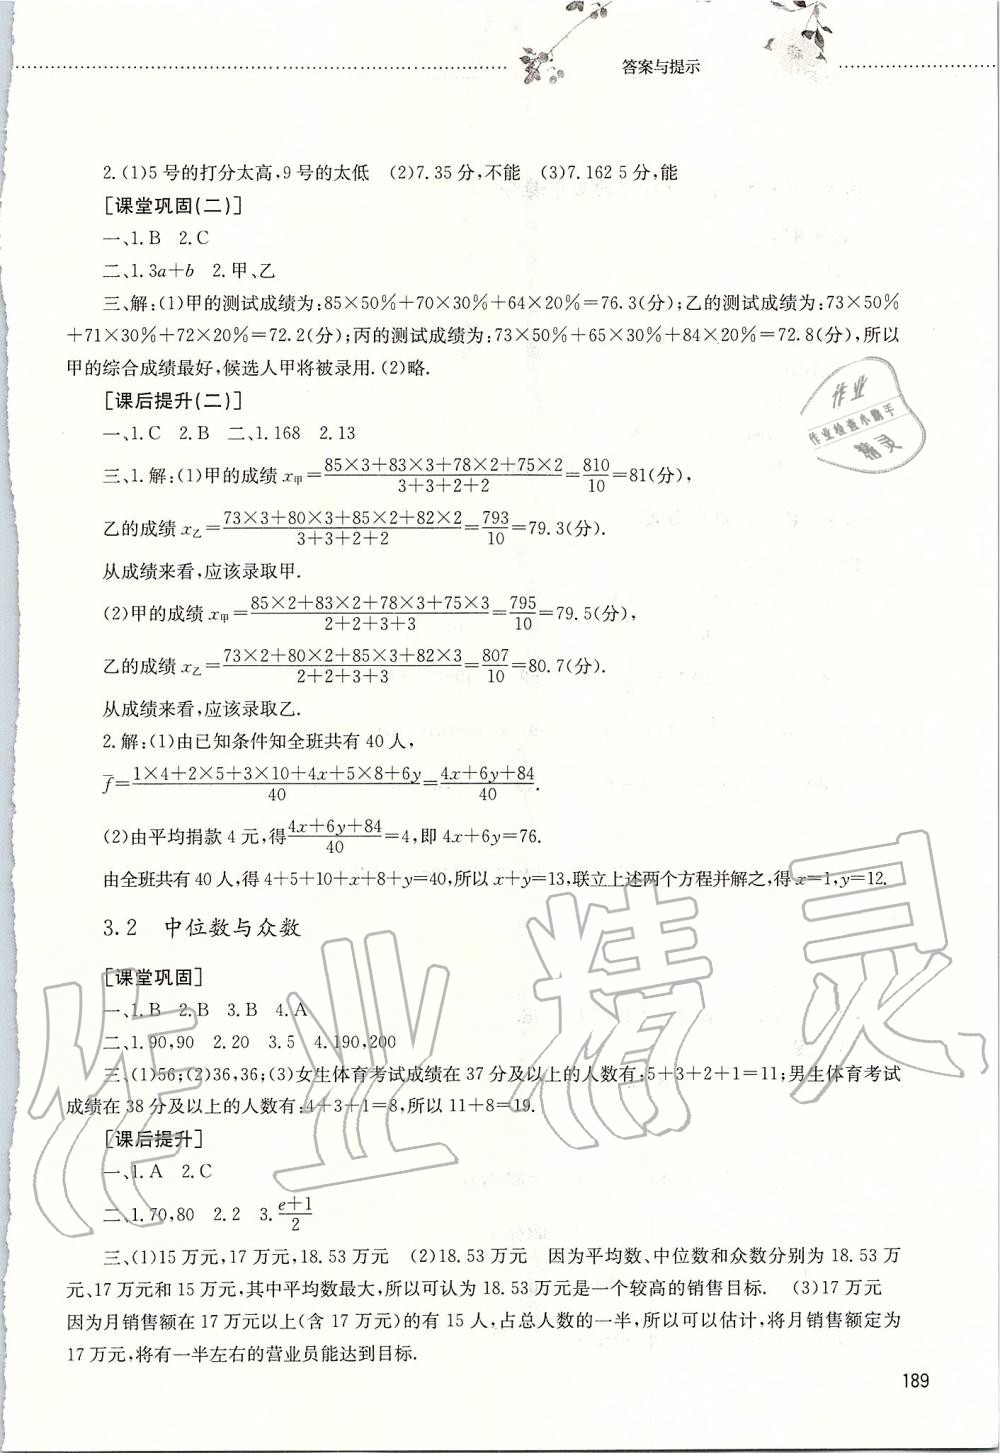 答案与提示
2.(1)5号的打分太高,9号的太低 (2)7.35分,不能 (3)7.162 5分,能
[课堂巩固(二)]
一、1.B 2.C
二、1.3a+b 2.甲、乙
三、解:(1)甲的测试成绩为:85×50%+70×30%+64×20%=76.3(分);乙的测试成绩为:73×50%
+71×30%+72×20%=72.2(分);丙的测试成绩为:73×50%+65×30%+84×20%=72.8(分),所以
甲的综合成绩最好,候选人甲将被录用.(2)略.
[课后提升(二)]
一、1.C 2.B 二、1.168 2.13
三、1.解:(1)甲的成绩 x甲=(85×3+83×3+78×2+75×2)/(3+3+2+2)=810/10=81(分),
乙的成绩 x乙=(73×3+80×3+85×2+82×2)/(3+3+2+2)=793/10=79.3(分).
从成绩来看,应该录取甲.
(2)甲的成绩 x甲=(85×2+83×2+78×3+75×3)/(2+2+3+3)=795/10=79.5(分),
乙的成绩 x乙=(73×2+80×2+85×3+82×3)/(2+2+3+3)=807/10=80.7(分).
从成绩来看,应该录取乙.
2.解:(1)由已知条件知全班共有 40 人,
f̄=(1×4+2×5+3×10+4x+5×8+6y)/40=(4x+6y+84)/40.
(2)由平均捐款 4 元,得(4x+6y+84)/40=4,即 4x+6y=76.
由全班共有 40 人,得 4+5+10+x+8+y=40,所以 x+y=13,联立上述两个方程并解之,得 x=1,y=12.
3.2 中位数与众数
[课堂巩固]
一、1.B 2.B 3.B 4.A
二、1.90,90 2.20 3.5 4.190,200
三、(1)56;(2)36,36;(3)女生体育考试成绩在 37 分及以上的人数有:5+3+2+1=11;男生体育考试
成绩在 38 分及以上的人数有:4+3+1=8,所以 11+8=19.
[课后提升]
一、1.A 2.C
二、1.70,80 2.2 3.(e+1)/2
三、(1)15 万元,17 万元,18.53 万元 (2)18.53 万元 因为平均数、中位数和众数分别为 18.53 万
元、17 万元和 15 万元,其中平均数最大,所以可认为 18.53 万元是一个较高的销售目标. (3)17 万元
因为月销售额在 17 万元以上(含 17 万元)的有 15 人,占总人数的一半,所以可以估计,将月销售额定为
17 万元,将有一半左右的营业员能达到目标.
189
作业
作业检查小助手
精灵
作业精灵